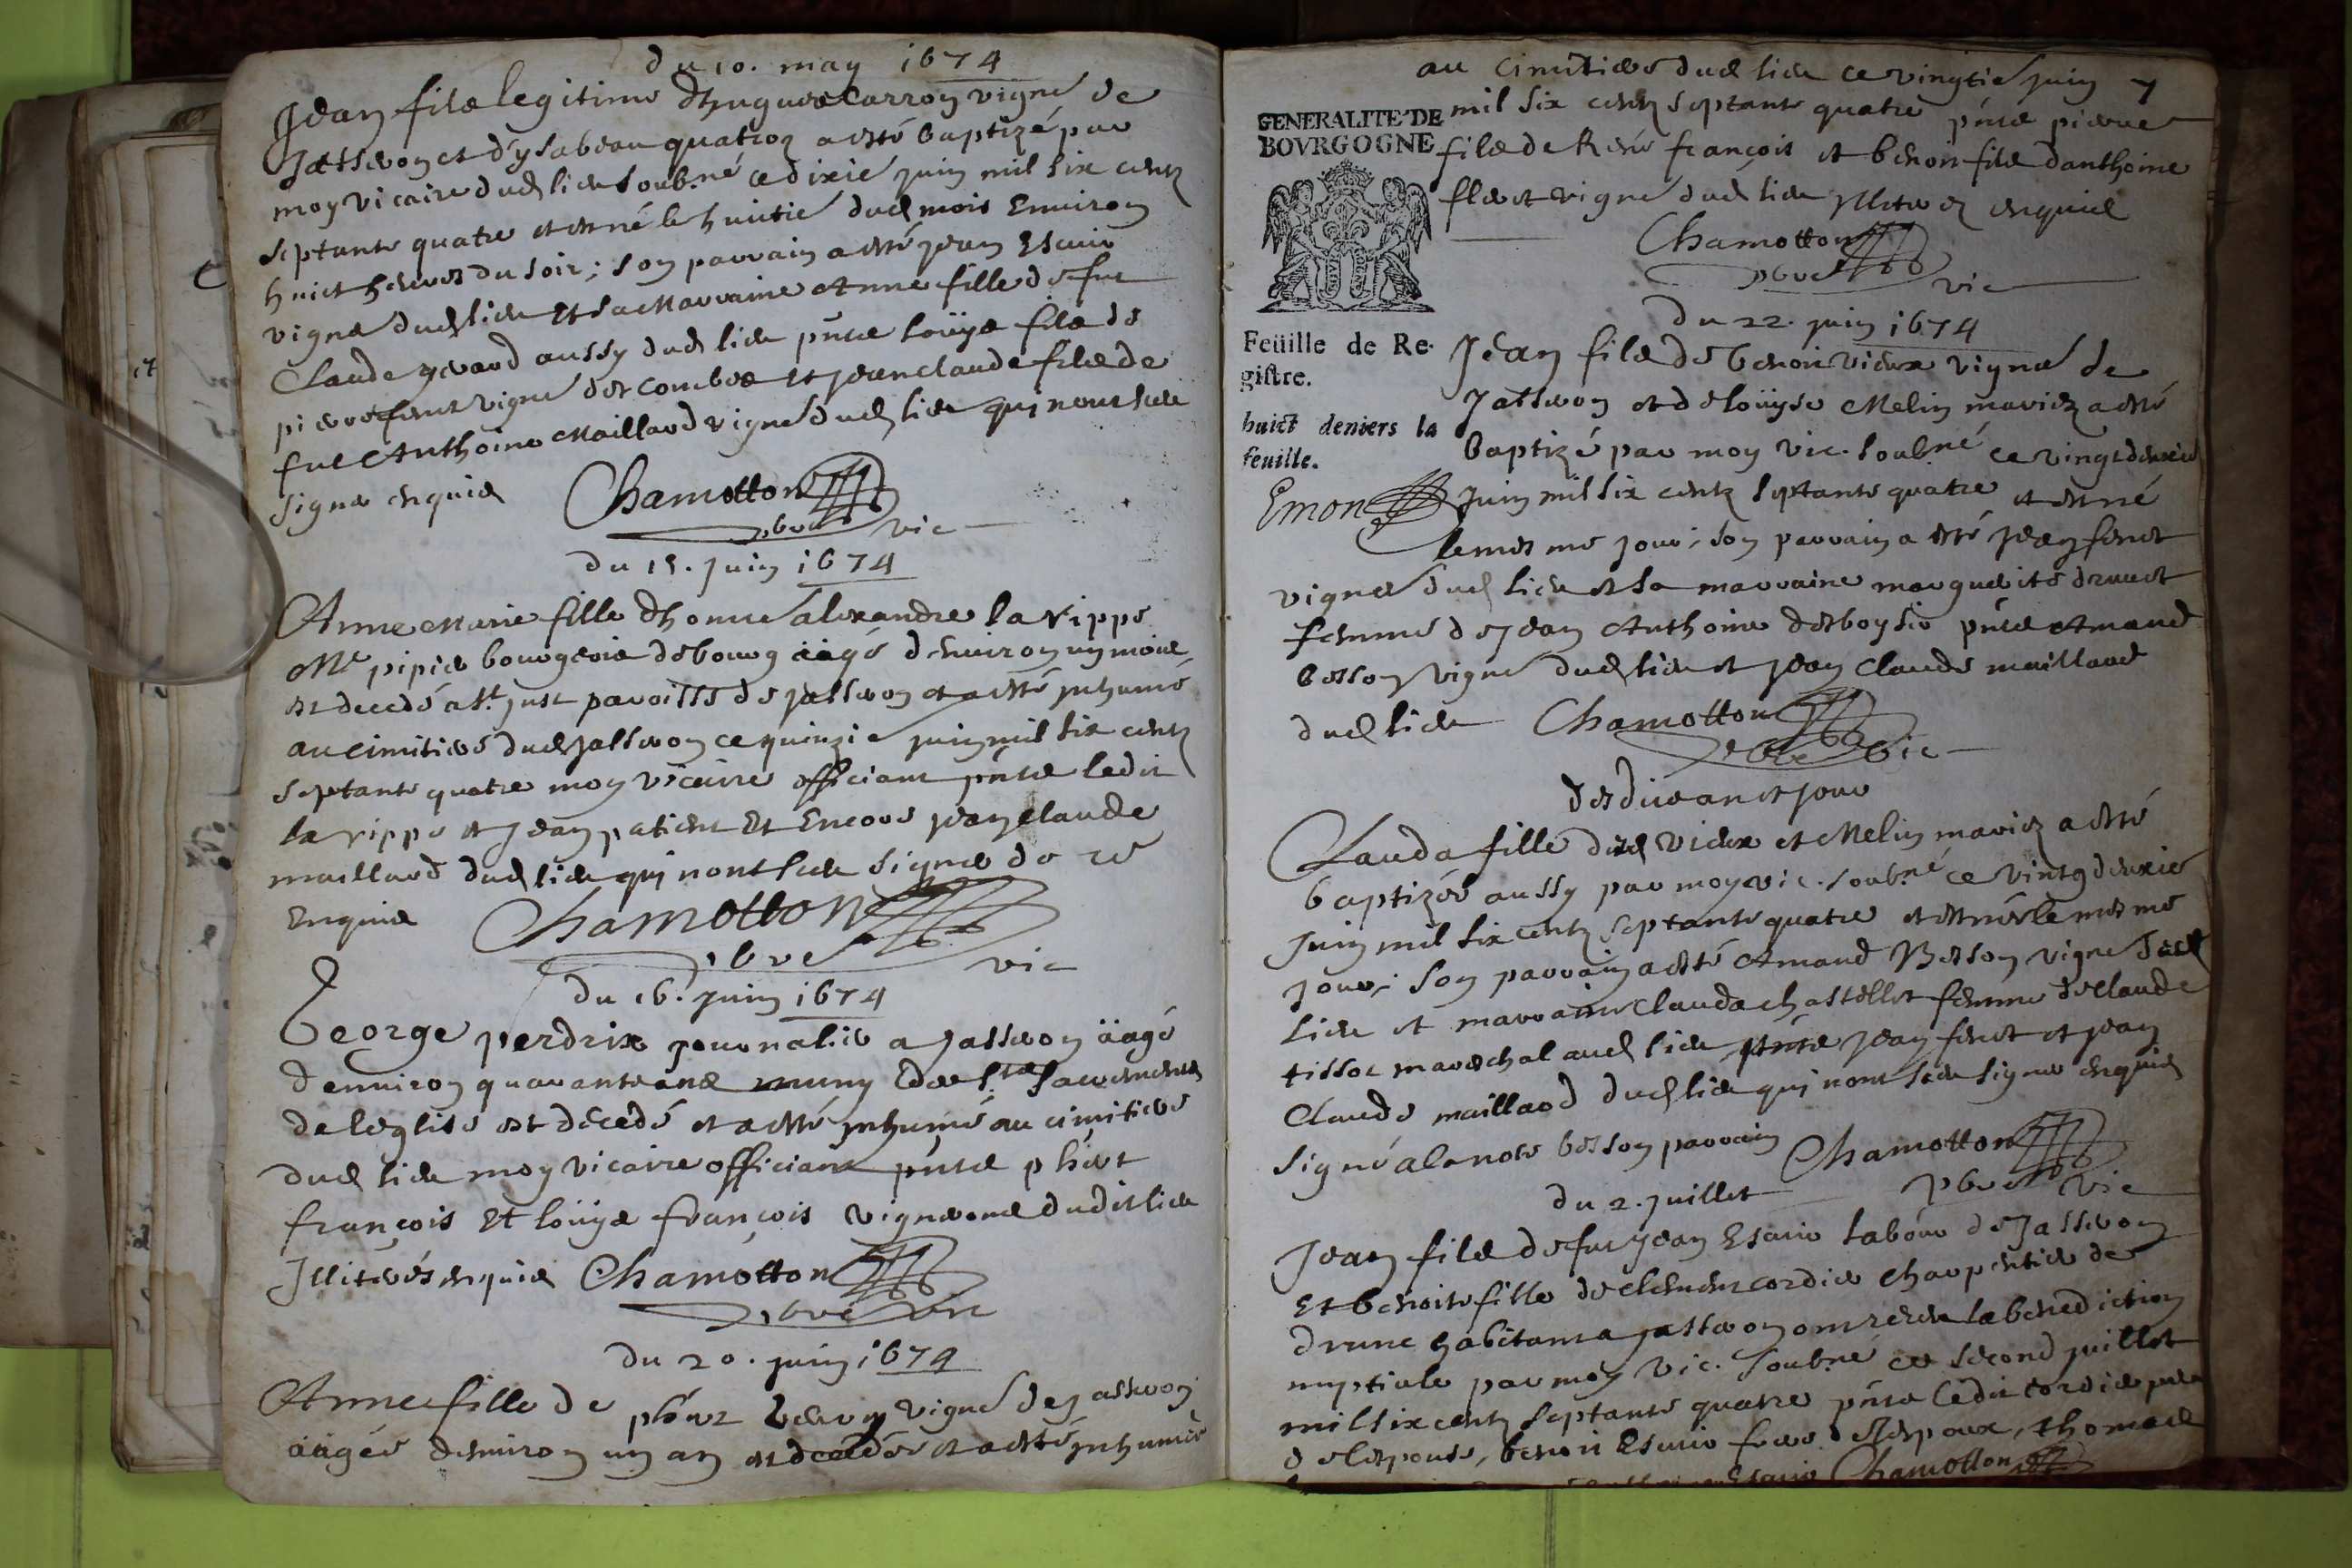 du 10. may 1674
Jean filz legitime d'hugues Carron vigne de
Jasseron et d'ysabeau quatroz a esté baptizé par
moy vicaire dud lieu soub.né ce dixie juin mil six centz
septante quatre et est né le huictie dud mois Environ
huict heures du soir; son parrain a esté jean Escuie
vigne dud lieu Et sa Marraine Anne fille de fue
Claude aussy dud lieu pnts loüys filz de
pierre feret vigne des combes et jean claude filz de
fut Anthoine Maillard vigne dud lieu quj nont sceu
signe enquis Chamotton
pbre vic
du 15. juin 1674
Anne Marie fille d'honne alexandre la rippe
Me pipie bourgeois de bourg äagé denuiron un mois
est decedé a st. just paroisse de jasseron et a esté jnhumé
au cimitiere dud jasseron ce quinzie juin mil six centz
septante quatre moy vicaire officiant pnts ledit
la rippe et jean patient Et Encore jean claude
maillard dud lieu quj nont sceu signe de ce
Enquis Chamotton
pbre vic
du 16. juin 1674
George perdrix journalie a jasseron äagé
denuiron quarante ans muny des sts sacremens
de leglise est decedé et a esté jnhumé au cimitiere
dud lieu moy vicaire officiant pnts phbert
françois Et loüys françois vignerons dudit lieu
Jlliterés enquis Chamotton
pbre vic
du 20. juin 1674
Anne fille de phbert vigne de jasseron
äagée denuiron un an est decedée et a esté jnhumée
au Cimitiere dud lieu ce vingtie juin 7
mil six centz septante quatre pnts pierre
filz de René françois et benoit filz danthoine
vigne dud lieu jlliterez enquis
Chamotton
pbre vic
GENERALITE DE
BOVRGOGNE
Feüille de Re-
gistre.
huict deniers la
feuille.
Emon
du 22. juin 1674
Jean filz de benoit vieux vigne de
Jasseron et de loüyse Melin mariez a esté
baptizé par moy vic. soub.né ce vingtdeuxie
juin mil six centz septante quatre et est né
le mesme jour; son parrain a esté jean feret
vigne dud lieu et sa marraine marguerite druet
femme de jean Anthoine desboysie pnts Amand
besson vigne dud lieu et jean Claude maillard
dud lieu Chamotton
pbre vic
desdits an et jour
Clauda fille desd vieux et Melin mariez a esté
baptizée aussy par moy vic. soub.né ce vintg deuxie
juin mil six centz septante quatre et est née le mesme
jour; son parrain a esté Amand Besson vigne dud
lieu et marraine Clauda chastellet femme de Claude
tissot mareschal aud lieu pnts jean feret et jean
Claude maillard dud lieu quj nont sceu signe enquis
signé a la note besson parrain Chamotton
pbre vic
du 2. juillet
Jean filz de fut jean Escuie labour de Jasseron
Et benoite fille de clement cordie charpentie de
drunc habitant a jasseron ont receu la benediction
nuptiale par moy vic. soub.né ce second juillet
mil six centz septante quatre pnts ledit cordie pere
de lespouse, benoit Escuie frere de lespoux, thomas
Escuie Chamotton